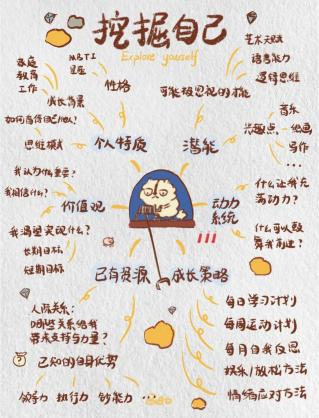 挖掘自己
Explore yourself
家庭
教育
工作
MBTI
星座
性格
成长背景
如何看待自己/他人?
思维模式
个人特质
艺术天赋
语言能力
逻辑思维
可能被忽视的技能
音乐
兴趣点
绘画
写作
...
潜能
我认为什么重要?
我相信什么?
价值观
我渴望实现什么?
长期目标
短期目标
什么让我充
满动力?
动力
系统
什么可以鼓
舞我前进?
已有资源
成长策略
人际关系:
哪些关系给我
带来支持与力量?
已知的自身优势
领导力
执行力
钞能力
...
每日学习计划
每周运动计划
每月自我反思
娱乐/放松方法
情绪应对方法